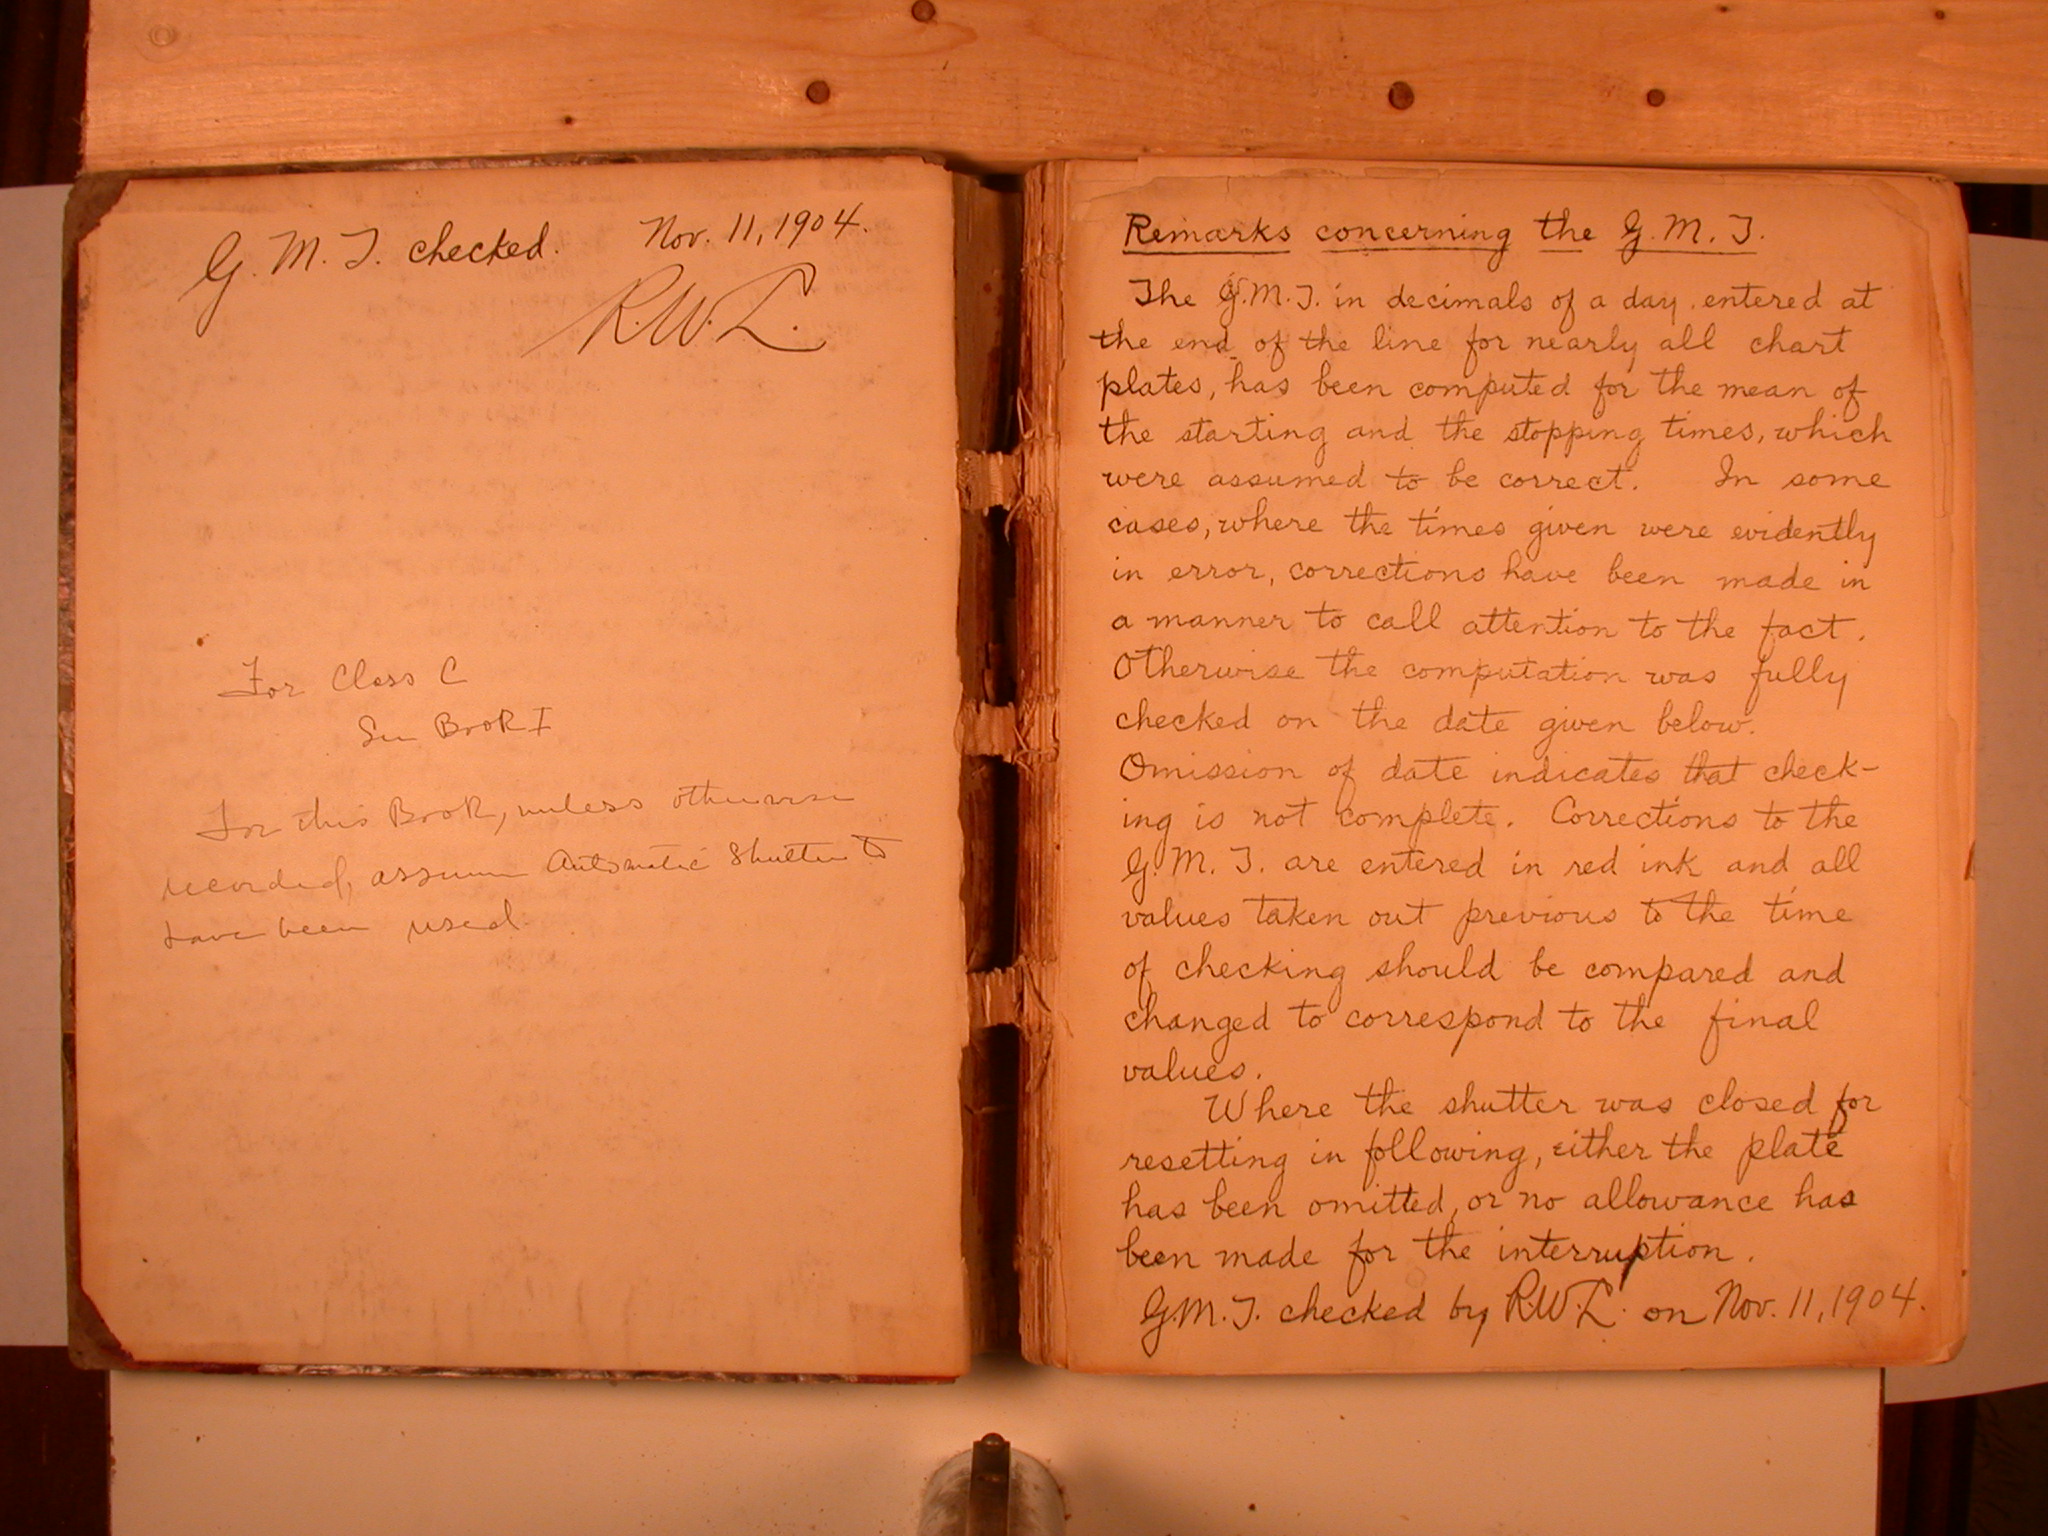 G. M. T. checked. Nov. 11, 1904.
R.W.L.
For Class C
See Book I
For this Book, unless otherwise
recorded, assume Automatic Shutter to
have been used.
Remarks concerning the G. M. T.
The G.M.T. in decimals of a day entered at
the end of the line for nearly all chart
plates, has been computed for the mean of
the starting and the stopping times, which
were assumed to be correct. In some
cases, where the times given were evidently
in error, corrections have been made in
a manner to call attention to the fact.
Otherwise the computation was fully
checked on the date given below.
Omission of date indicates that check-
ing is not complete. Corrections to the
G. M. T. are entered in red ink and all
values taken out previous to the time
of checking should be compared and
changed to correspond to the final
values.
Where the shutter was closed for
resetting in following, either the plate
has been omitted, or no allowance has
been made for the interruption.
G.M.T. checked by R.W.L. on Nov. 11, 1904.